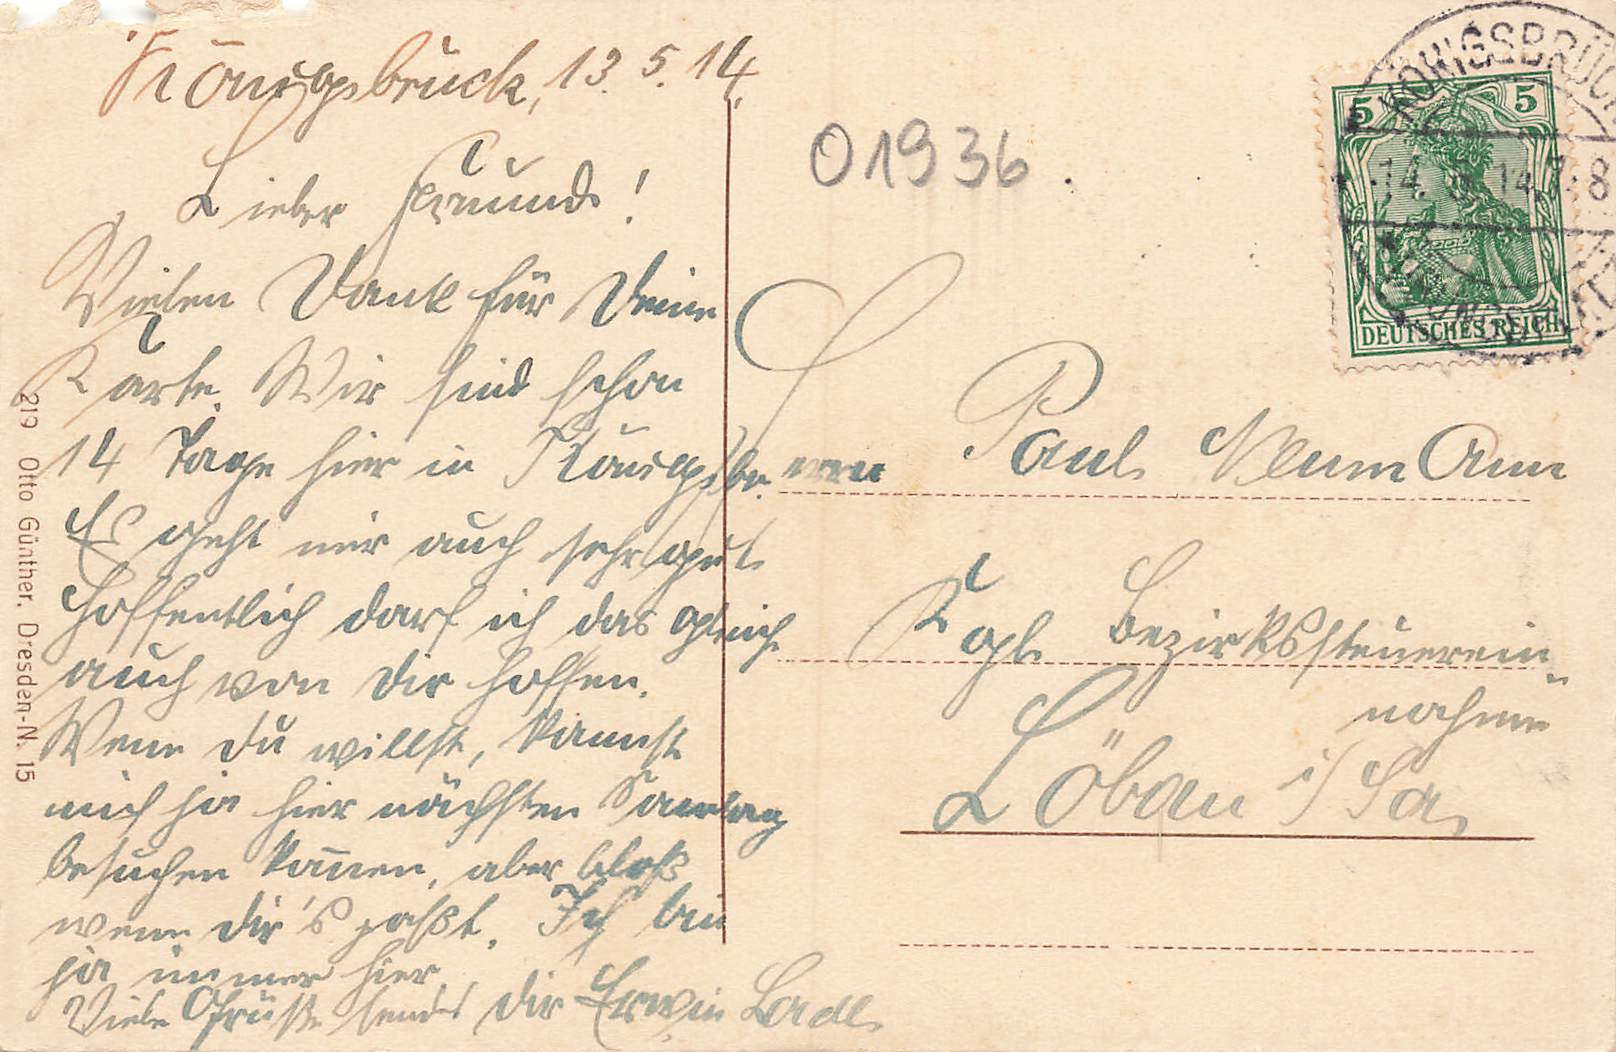 Königsbrück, 13.5.14.
Lieber Freund!
Vielen Dank für Deine
Karte. Wir sind schon
14 Tage hier in Königsbr.
Es geht mir auch sehr gut.
Hoffentlich darf ich das gleiche
auch von Dir hoffen.
Wenn Du willst, kannst
mich ja hier nächsten Sonntag
besuchen kommen, aber bloß
wenn dir's paßt. Ich bin
ja immer hier.
Viele Grüße sendet Dir Erwin
219 Otto Günther, Dresden-N. 15
01936.
5 5
DEUTSCHES REICH
KÖNIGSBRÜCK
14. 5. 14. 7-8
Herrn Paul Neumann
Kgl. Bezirkssteuerein-
nahme
Löbau i/Sa.